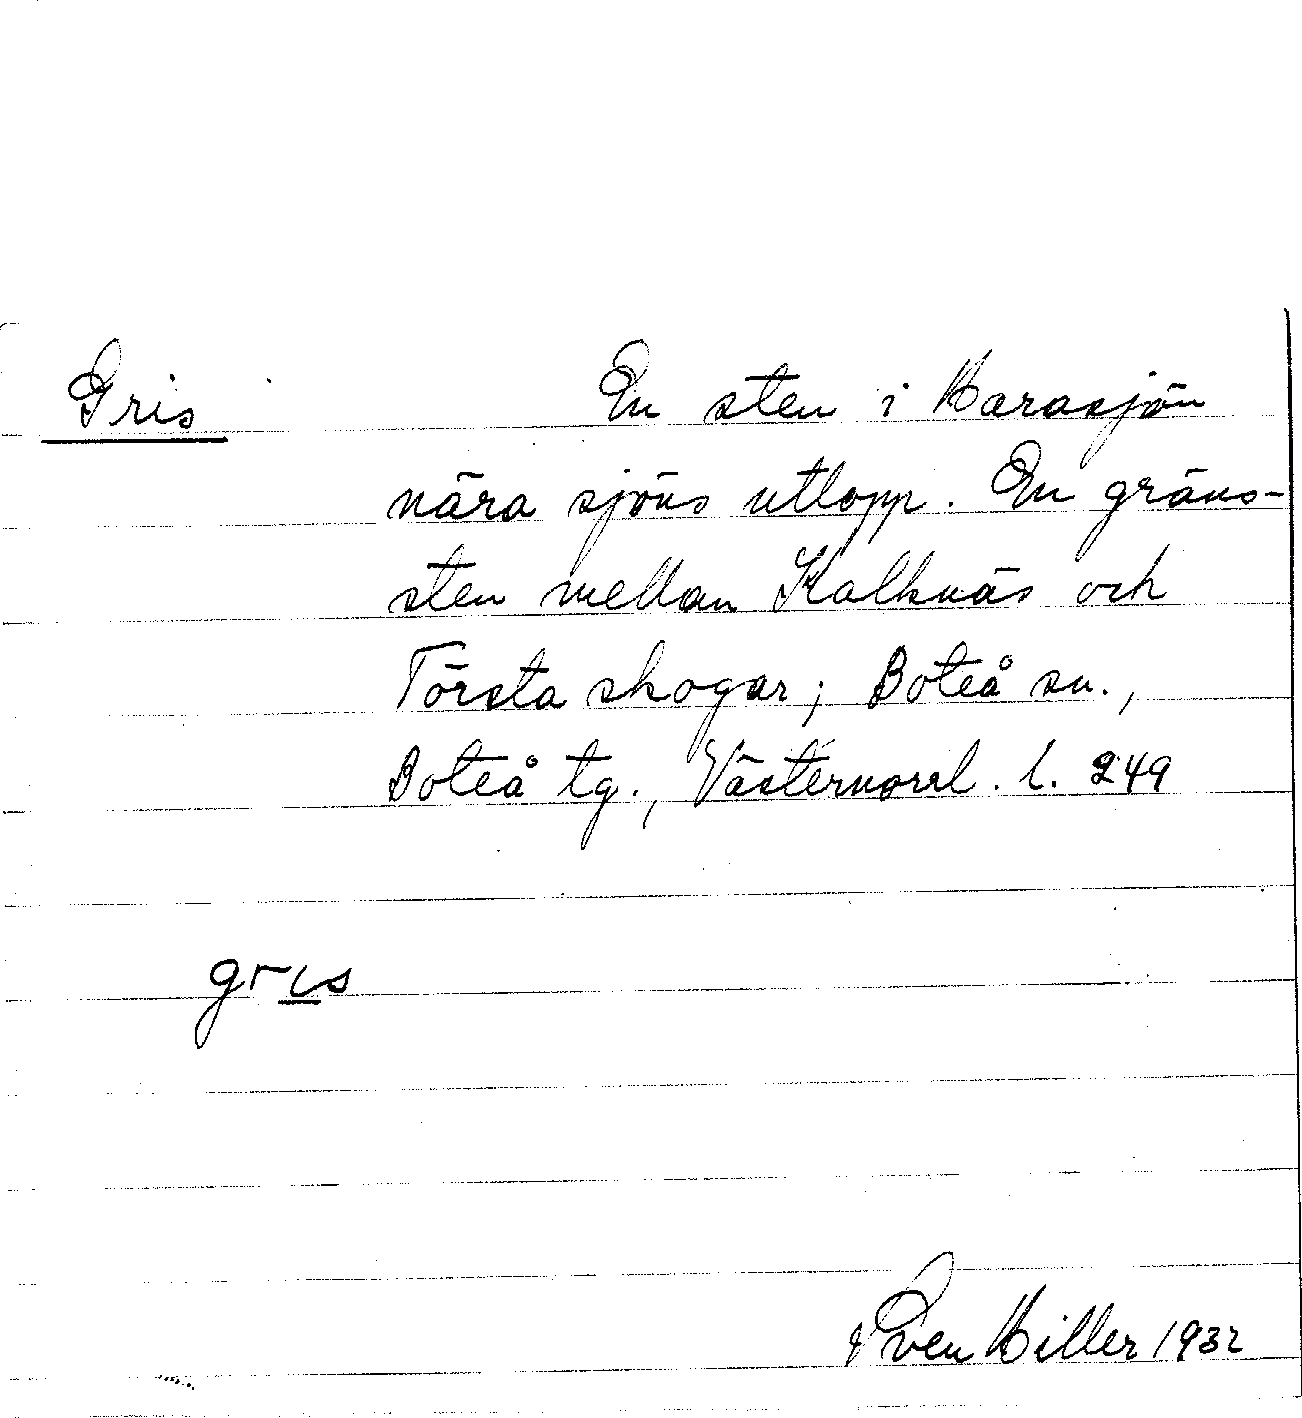 Gris En sten i Harasjön
nära sjöns utlopp. En gräns-
sten mellan Kalknäs och
Törsta skogar; Boteå sn.,
Boteå tg., Västernorrl. l. 249
gris
Sven Hiller 1932